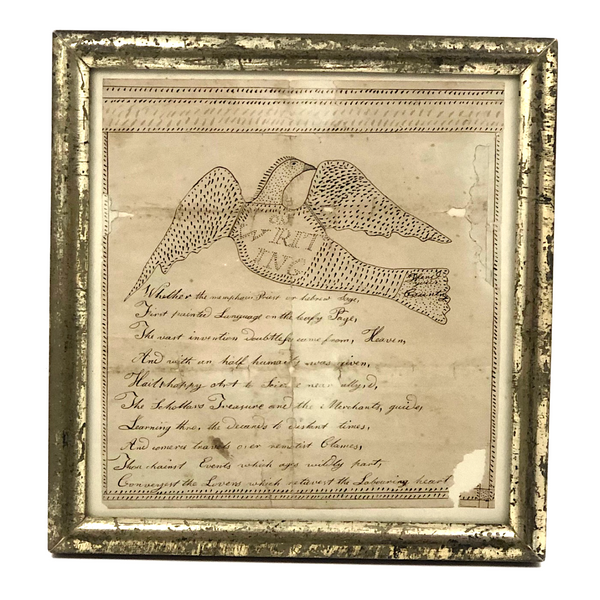 WRIT
ING
Whether the memphian Priest or hebrew Sage,
First painted Language on the leafy Page,
The vast invention doubtless came from, Heaven,
And with an half humanity was given,
Hail happy art to Science near ally,d,
The Schollars Treasure and the Merchants, guide,
Learning thro, the decends to distant times,
And comerce travels over remotist Clames,
Thou chainst Events which ages wildly part,
Conveyest the Lovers which retrevest the Labouring heart